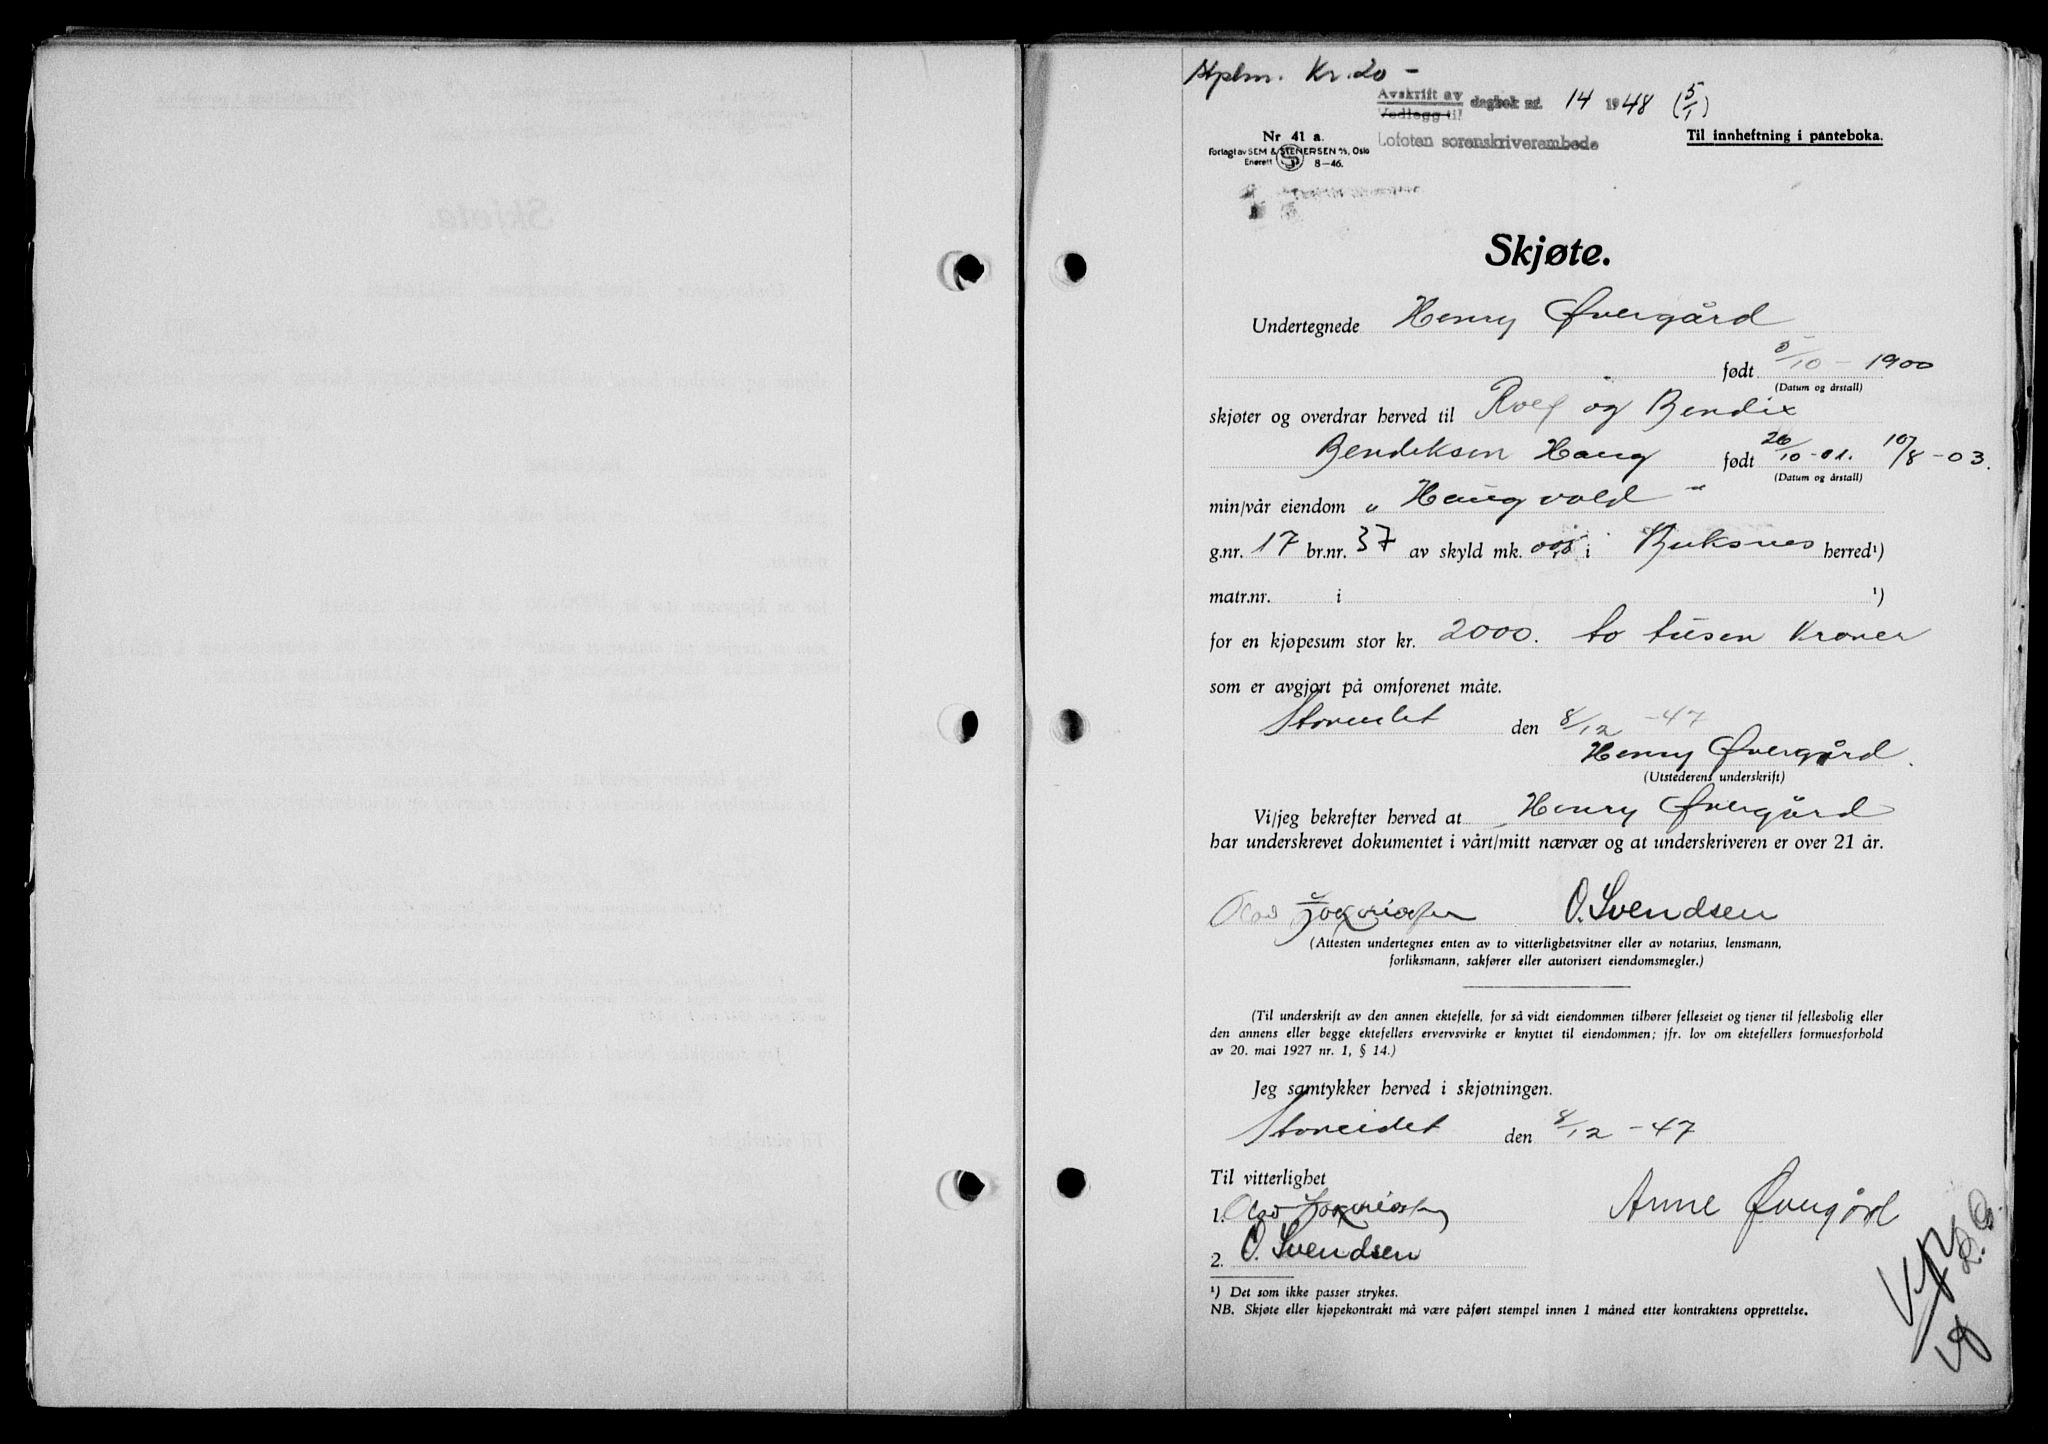 Stplm. Kr. 20 -
Avskrift av
Vedlegg til
dagbok nr. 14 1948 (5/1)
Lofoten sorenskriverembede
Nr 41 a.
Til innheftning i panteboka.
Forlagt av SEM & STENERSEN A/S, Oslo
Enerett S 8-46.
Skjøte.
Undertegnede Henry Øvergård
født 5/10 - 1900
(Datum og årstall)
skjøter og overdrar herved til Rolf og Bendix
Bendiksen Haug født 26/10-01. 10/8-03.
(Datum og årstall)
min/vår eiendom „Haugvold"
g.nr. 17 br.nr. 37 av skyld mk. i Buksnes herred¹)
matr.nr. i ¹)
for en kjøpesum stor kr. 2000. to tusen Kroner
som er avgjort på omforenet måte.
Storeidet den 8/12 -47
Henry Øvergård.
(Utstederens underskrift)
Vi/jeg bekrefter herved at Henry Øvergård
har underskrevet dokumentet i vårt/mitt nærvær og at underskriveren er over 21 år.
O. Svendsen
(Attesten undertegnes enten av to vitterlighetsvitner eller av notarius, lensmann,
forliksmann, sakfører eller autorisert eiendomsmegler.)
(Til underskrift av den annen ektefelle, for så vidt eiendommen tilhører felleseiet og tjener til fellesbolig eller
den annens eller begge ektefellers ervervsvirke er knyttet til eiendommen; jfr. lov om ektefellers formuesforhold
av 20. mai 1927 nr. 1, § 14.)
Jeg samtykker herved i skjøtningen.
Storeidet den 8/12 -47
Til vitterlighet
1. Anne Øvergård
2. O. Svendsen
¹) Det som ikke passer strykes.
NB. Skjøte eller kjøpekontrakt må være påført stempel innen 1 måned etter kontraktens opprettelse.